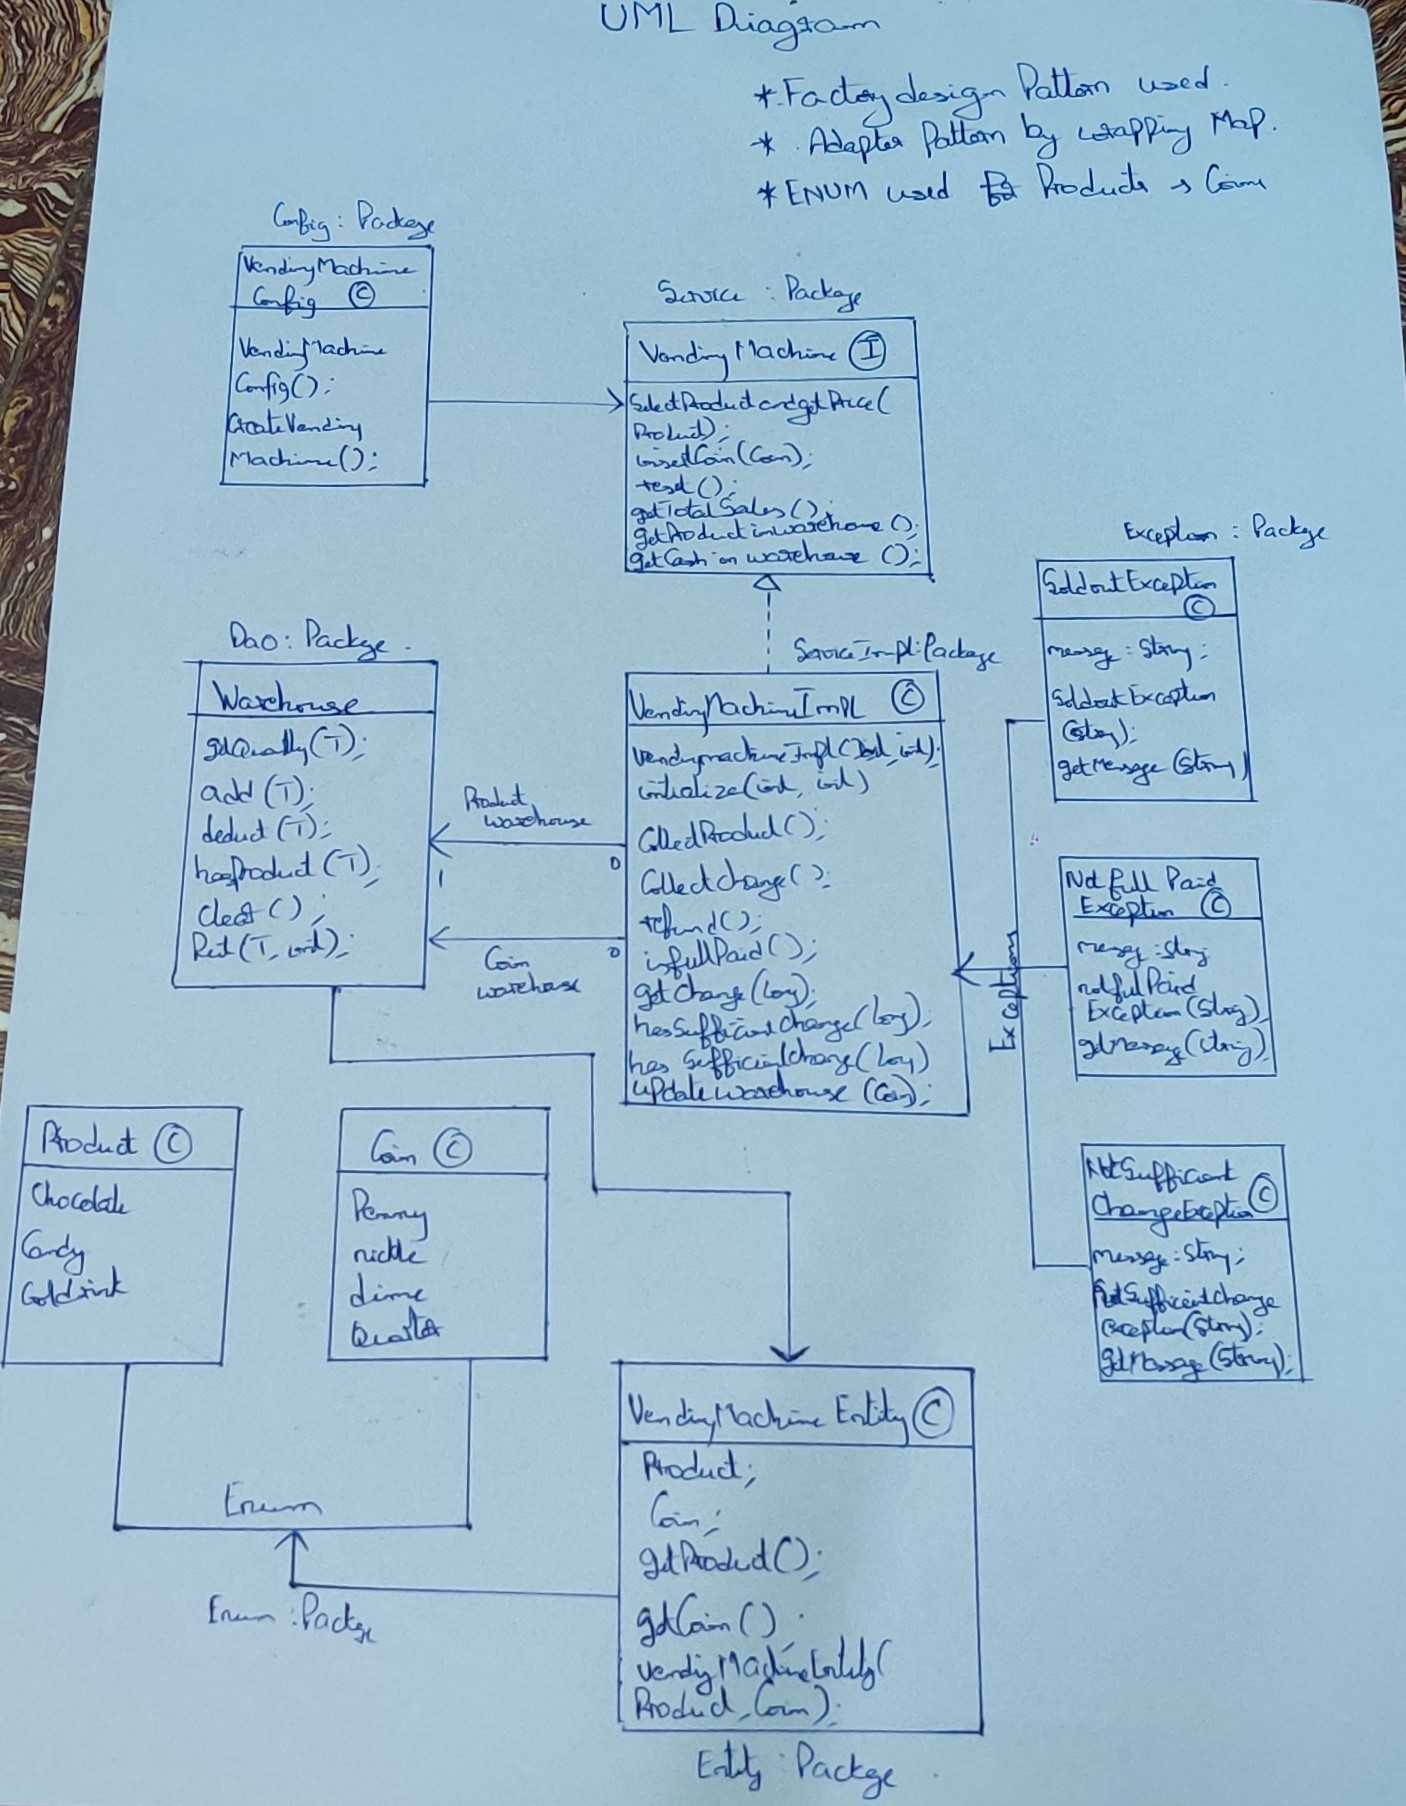 UML Diagram
* Factory design Pattern used.
* Adapter Pattern by wrapping Map.
* ENUM used for Products & Coins
Config : Package
VendingMachine
Config C
VendingMachine
Config();
CreateVending
Machine();
Service : Package
VendingMachine I
SelectProductandgetPrice(
Product);
insertCoin(Coin);
reset();
getTotalSales();
getProductinwarehouse();
getCashinwarehouse();
Exception : Package
SoldoutException
C
message : String;
SoldoutException
(String);
getMessage(String)
Dao : Package.
Warehouse
getQuantity(T);
add(T);
deduct(T);
hasProduct(T);
clear();
Put(T, int);
Product
warehouse
0
1
Coin
warehouse
0
ServiceImpl : Package
VendingMachineImpl C
VendingmachineImpl(int, int);
initialize(int, int)
CollectProduct();
CollectChange();
refund();
isfullPaid();
getChange(Long);
hasSufficientChange(Long);
has SufficientChange(Long)
updatewarehouse(Coin);
Exceptions
NotfullPaid
Exception C
message : String
notfulPaid
Exception(String);
getMessage(String)
NotSufficient
ChangeException C
message : String;
NotSufficientChange
Exception(String);
getMessage(String);
Product C
Chocolate
Candy
Coldrink
Coin C
Penny
nickle
dime
Quarter
Enum
Enum : Package
VendingMachine Entity C
Product;
Coin;
getProduct();
getCoin();
VendingMachineEntity(
Product, Coin);
Entity : Package